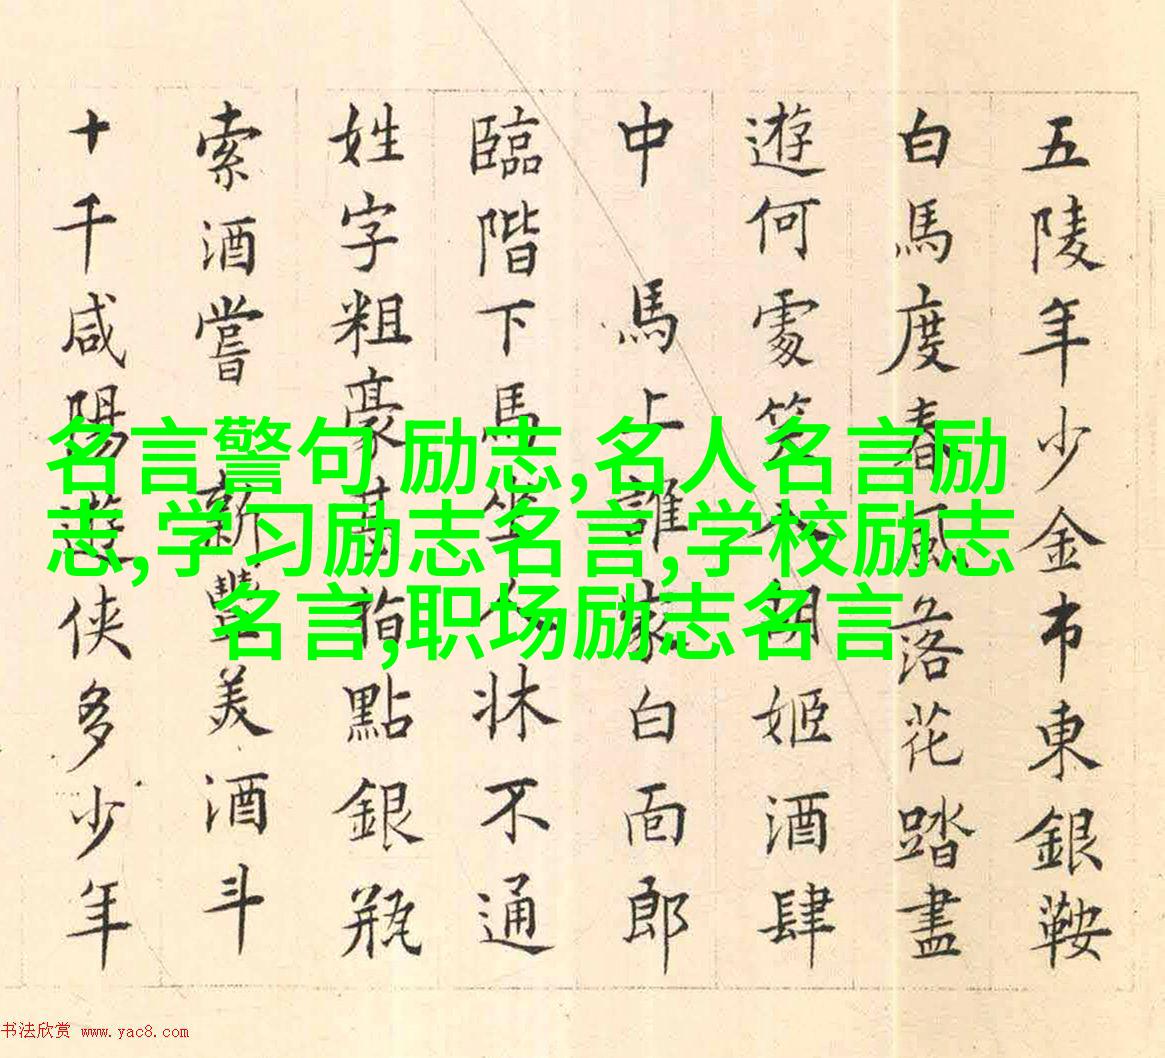 五陵年少金市東銀鞍
白馬度春風落花踏盡
遊何處笑入胡姬酒肆
中 馬上誰家白面郎
臨階下馬坐人牀不通
姓字粗豪甚指點銀瓶
索酒嘗 新豐美酒斗
十千咸陽遊俠多少年
名言警句 励志,名人名言励
志,学习励志名言,学校励志
名言,职场励志名言
书法欣赏 www.yac8.com